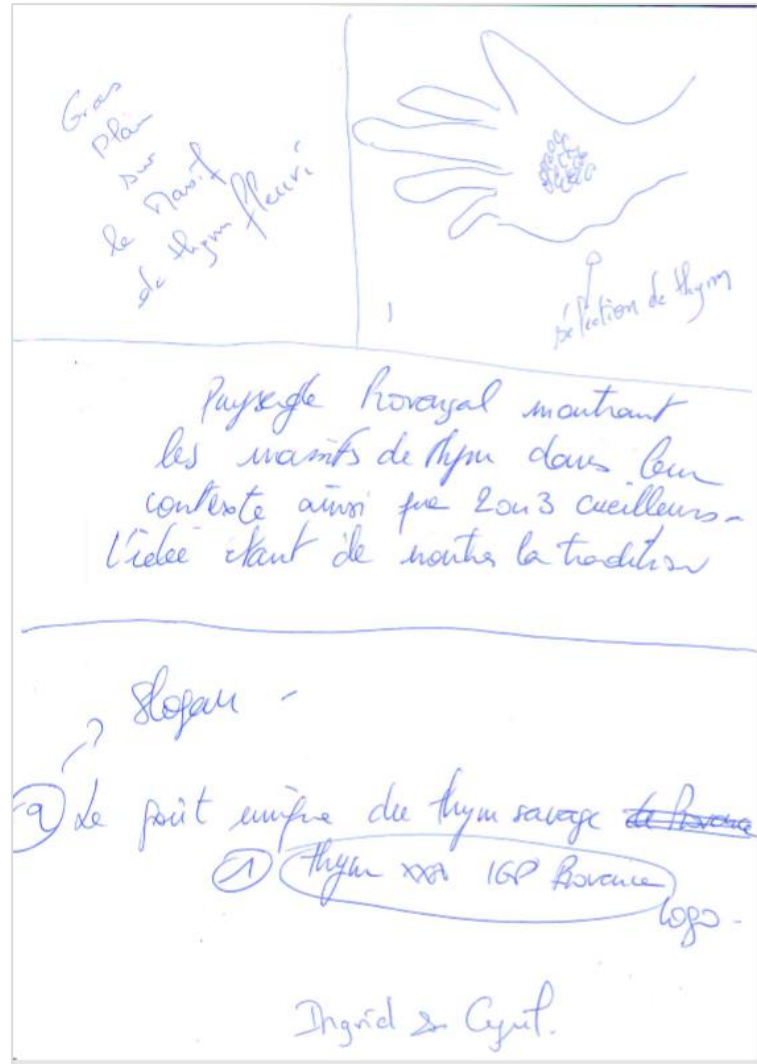 Gros
plan
sur
le Massif
de thym fleuri
sélection de thym
Paysage Provençal montrant
les massifs de thym dans leur
contexte ainsi que 2 ou 3 cueilleurs -
L'idée étant de montrer la tradition
Slogan -
② Le goût unique du thym sauvage de Provence
① thym IGP Provence
logo -
Ingrid & Cyril.